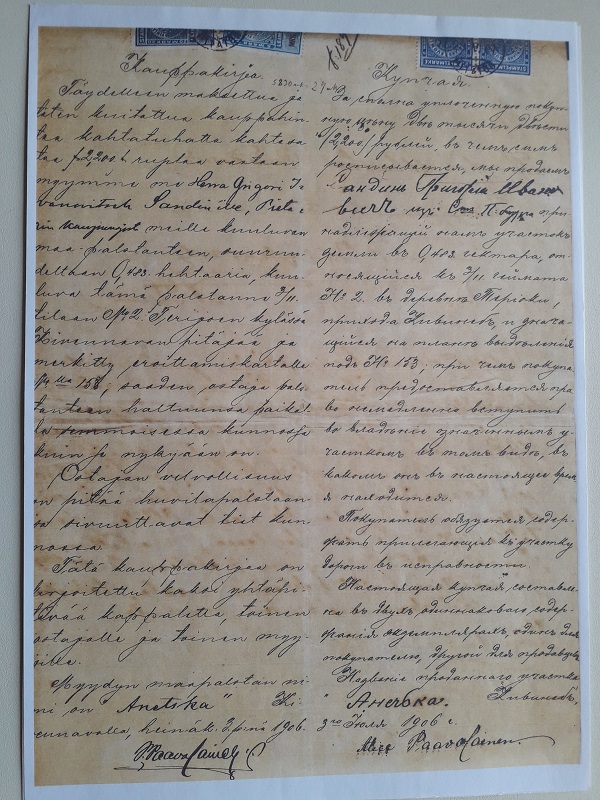 Kauppakirja.
Täydelleen maksettua ja
taten kuitattua kauppahin
taa kahtatuhatta kahtasa
taa "2,200" ruplaa vastaan
myymme me Herra Grigori I
vanovitsch Sandin'ille, Pieta
rin kaupungista meille kuuluvan
maa-palstantsen, suurun
deltaan 0,483 hehtaaria, kuu
luva tämä palstanne 3/11
tilaan No 2. Terijoen kylässä
Kivennavan pitäjää ja
merkitty eroittamiskartalle
153; saaden ostaja pals
tantsen haltuunsa paikal
la semmoisessa kunnossa
kuin se nykyaan on.
Ostajan velvollisuus
on pitää huvilapalstaan
sa sivuuttavat tiet kun
nossa.
Tätä kauppakirjaa on
kirjoitettu kaksi yhtäpi
tävää kappaletta, toinen
ostajalle ja toinen myy
jälle.
Myydyn maapalstan ni
mi on "Anetska" Ki
vennavalla, heinäk. 3 p:nä 1906.
P. Paavolainen
Купчая.
За сполна уплоченную покуп
ную цѣну двѣ тысячи двѣсти
"2,200" рублей, въ чемъ симъ
росписывается, мы продаемъ
Сандинъ Григорій Ивано
вичъ изъ С. П.-бурга при
надлежащій намъ участокъ
земли въ 0,483 гектара, от
носящійся къ 3/11 геймата
№ 2. въ деревнѣ Теріоки,
прихода Кивинебъ, и знача
щійся на планѣ выдѣленія
подъ № 153; при чемъ покупа
тель предоставляется пра
во немедленно вступить
во владѣніе означеннымъ у
часткомъ въ томъ видѣ, въ
какомъ онъ въ настоящее врем
я находится.
Покупатель обязуется содер
жать прилегающія къ участку
дороги въ исправности.
Настоящая купчая составле
на въ двухъ, одинаковаго содер
жанія экземплярахъ, одинъ для
покупателя, другой для продавцовъ
Названіе проданнаго участка
"Анечька." Кивинебъ,
3го Іюля 1906 г.
Alice Paavolainen.